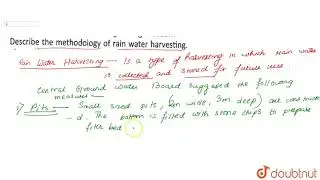 Describe the methodology of rain water harvesting.
Rain Water Harvesting — Is a type of harvesting in which rain water
is collected and stored for future use
Central Ground water Board suggested the following
measures —
Pits — Small sized pits, (2m wide, 3m deep) are construcate
- d. The bottom is filled with stone chips to prepare
filter bed
doubtnut